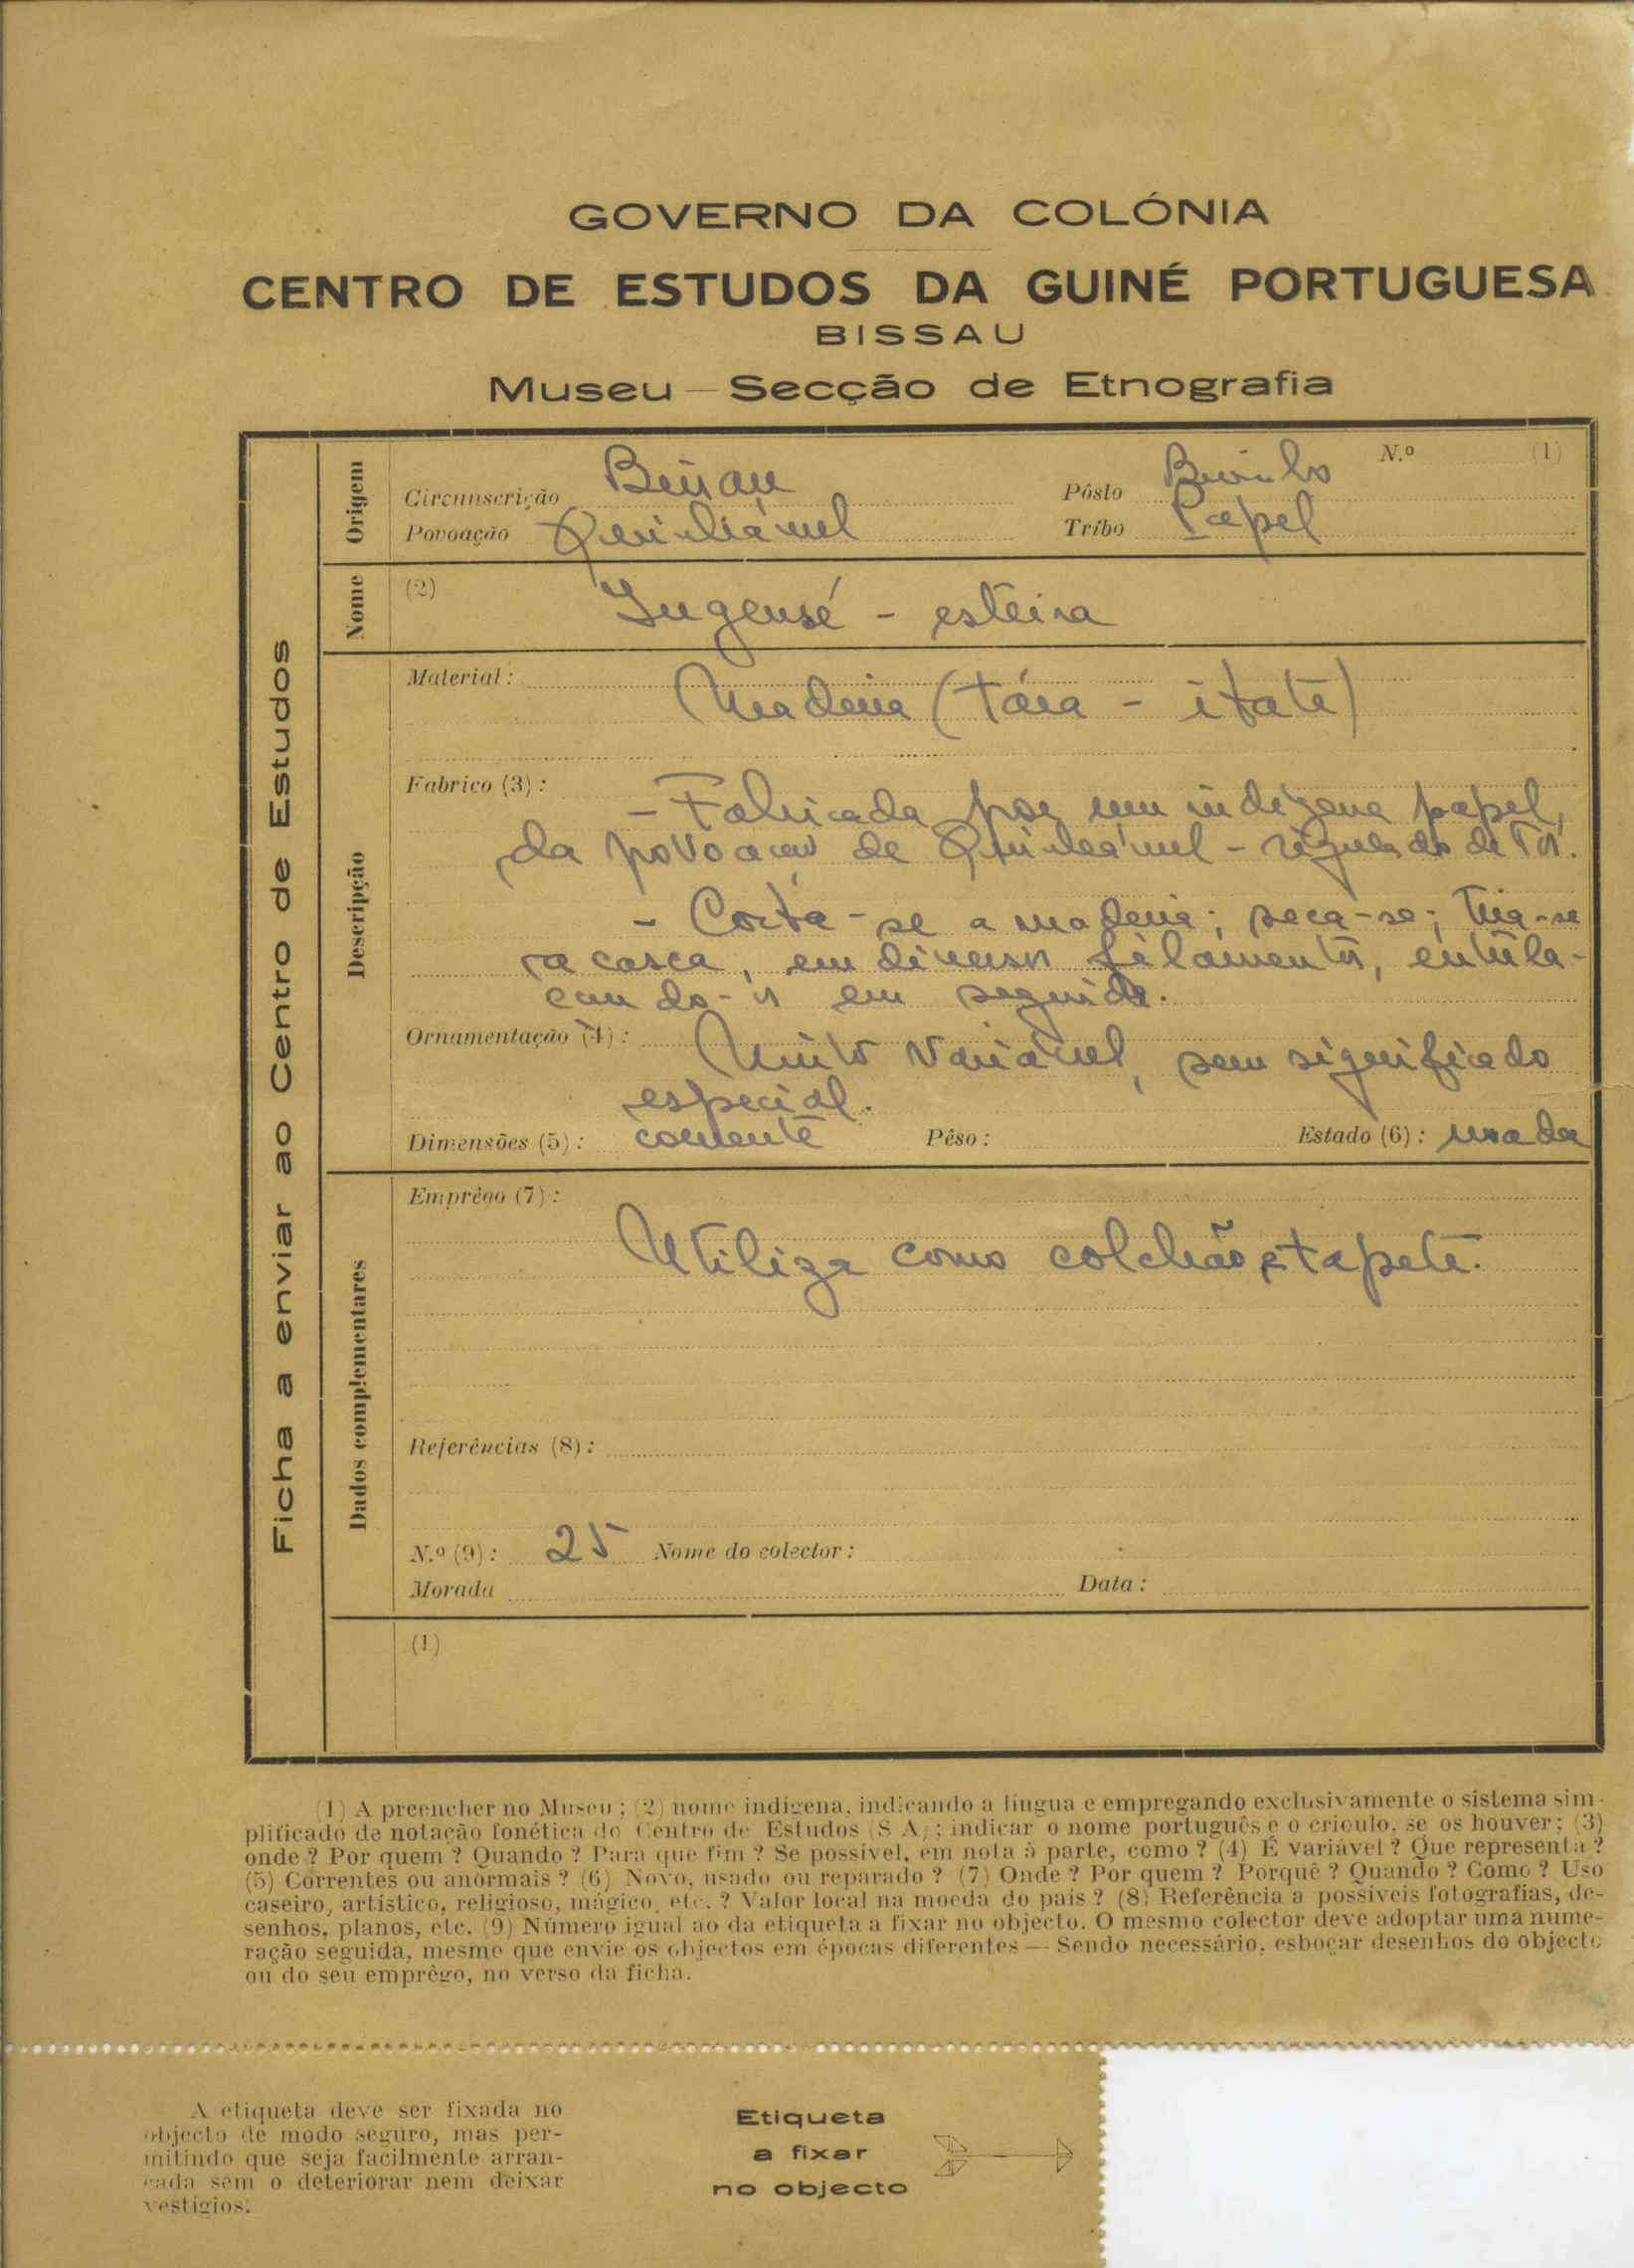 GOVERNO DA COLÓNIA
CENTRO DE ESTUDOS DA GUINÉ PORTUGUESA
BISSAU
Museu — Secção de Etnografia
Ficha a enviar ao Centro de Estudos
Origem
Circunscrição Bissau Pôsto N.º (1)
Povoação Quinhámel Tribo Papel
Nome
(2) - esteira
Descripção
Material: Madeira (tára - itate)
Fabrico (3): - Fabricada por um indígena papel,
da povoação de Quinhámel - regulado de Tôr.
- Corta-se a madeira; seca-se; tira-se
a casca, em diversos filamentos, entrela-
çando-os em seguida.
Ornamentação (4): Muito variável, sem significado
especial.
Dimensões (5): corrente Pêso: Estado (6): usada
Dados complementares
Emprêgo (7):
Utiliza como colchão e tapete.
Referências (8):
N.º (9): 25 Nome do colector:
Morada Data:
(1)
(1) A preencher no Museu; (2) nome indígena, indicando a língua e empregando exclusivamente o sistema sim-
plificado de notação fonética do Centro de Estudos (S A); indicar o nome português e o crioulo, se os houver; (3)
onde? Por quem? Quando? Para que fim? Se possível, em nota à parte, como? (4) É variável? Que representa?
(5) Correntes ou anormais? (6) Novo, usado ou reparado? (7) Onde? Por quem? Porquê? Quando? Como? Uso
caseiro, artístico, religioso, mágico, etc.? Valor local na moeda do país? (8) Referência a possíveis fotografias, de-
senhos, planos, etc. (9) Número igual ao da etiqueta a fixar no objecto. O mesmo colector deve adoptar uma nume-
ração seguida, mesmo que envie os objectos em épocas diferentes — Sendo necessário, esboçar desenhos do objecto
ou do seu emprêgo, no verso da ficha.
A etiqueta deve ser fixada no
objecto de modo seguro, mas per-
mitindo que seja facilmente arran-
cada sem o deteriorar nem deixar
vestígios.
Etiqueta
a fixar
no objecto